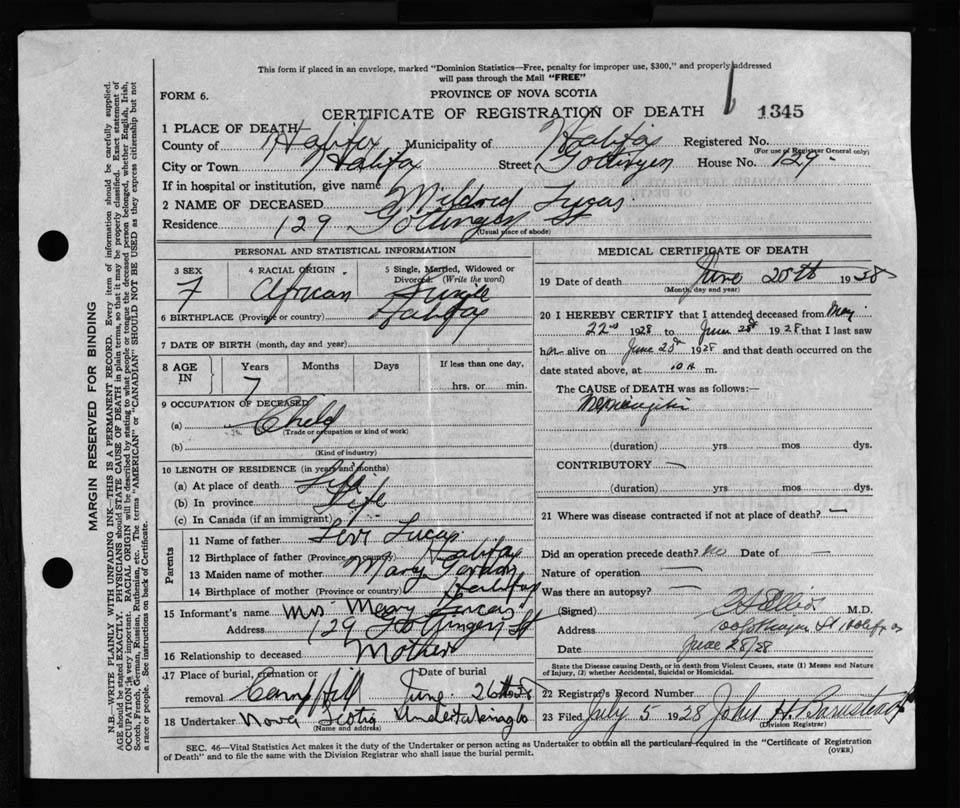 This form if placed in an envelope, marked "Dominion Statistics—Free, penalty for improper use, $300," and properly addressed
will pass through the Mail "FREE"
FORM 6.
PROVINCE OF NOVA SCOTIA
CERTIFICATE OF REGISTRATION OF DEATH
1345
1 PLACE OF DEATH
County of Halifax Municipality of Halifax Registered No.
(For use of Registrar General only)
City or Town Halifax Street Gottingen House No. 129
If in hospital or institution, give name
2 NAME OF DECEASED Mildred Lucas
Residence 129 Gottingen St
(Usual place of abode)
PERSONAL AND STATISTICAL INFORMATION
3 SEX
F
4 RACIAL ORIGIN
African
5 Single, Married, Widowed or
Divorced. (Write the word)
Single
6 BIRTHPLACE (Province or country) Halifax
7 DATE OF BIRTH (month, day and year)
8 AGE
IN
Years
7
Months
Days
If less than one day,
hrs. or min.
9 OCCUPATION OF DECEASED
(a) Child
(Trade or occupation or kind of work)
(b)
(Kind of industry)
10 LENGTH OF RESIDENCE (in years and months)
(a) At place of death Life
(b) In province Life
(c) In Canada (if an immigrant)
Parents
11 Name of father Levi Lucas
12 Birthplace of father (Province or country) Halifax
13 Maiden name of mother Mary Gordon
14 Birthplace of mother (Province or country) Halifax
15 Informant's name Mrs Mary Lucas
Address 129 Gottingen St
16 Relationship to deceased Mother
17 Place of burial, cremation or
removal Camp Hill
Date of burial
June 26th 28
18 Undertaker Nova Scotia Undertaking Co
(Name and address)
MEDICAL CERTIFICATE OF DEATH
19 Date of death June 25th 1928
(Month, day and year)
20 I HEREBY CERTIFY that I attended deceased from May
22nd 1928 to June 1928 that I last saw
her alive on June 1928 and that death occurred on
date stated above, at 10 m.
The CAUSE of DEATH was as follows:—
Meningitis
(duration) yrs mos dys.
CONTRIBUTORY —
(duration) yrs mos dys.
21 Where was disease contracted if not at place of death? —
Did an operation precede death? no Date of
Nature of operation —
Was there an autopsy? —
(Signed) M.D.
Address St Halifax
Date June 28/28
State the Disease causing Death, or in death from Violent Causes, state (1) Means and Nature
of Injury, (2) whether Accidental, Suicidal or Homicidal.
22 Registrar's Record Number
23 Filed July 5 1928 John H. Barnstead
(Division Registrar)
SEC. 46—Vital Statistics Act makes it the duty of the Undertaker or person acting as Undertaker to obtain all the particulars required in the "Certificate of Registration
of Death" and to file the same with the Division Registrar who shall issue the burial permit.
(OVER)
MARGIN RESERVED FOR BINDING
N.B.—WRITE PLAINLY WITH UNFADING INK—THIS IS A PERMANENT RECORD. Every item of information should be carefully supplied.
AGE should be stated EXACTLY. PHYSICIANS should STATE CAUSE OF DEATH in plain terms, so that it may be properly classified. Exact statement of
OCCUPATION is very important. RACIAL ORIGIN will be described by stating to what people or tongue the deceased person belonged, whether English, Irish,
Scotch, French, German, Russian, Ruthenian, etc. The terms "AMERICAN" or "CANADIAN" SHOULD NOT BE USED as they express citizenship but not
a race or people. See instructions on back of Certificate.